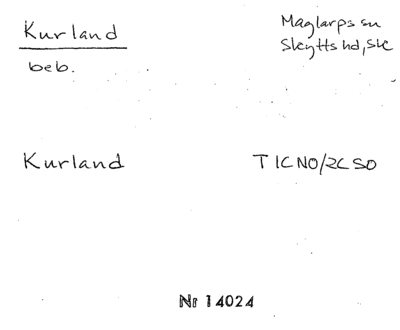 Kurland
Maglarps sn
Skytts hd, Sk
beb.
Kurland
TICNO/2CSO
Nr 14024